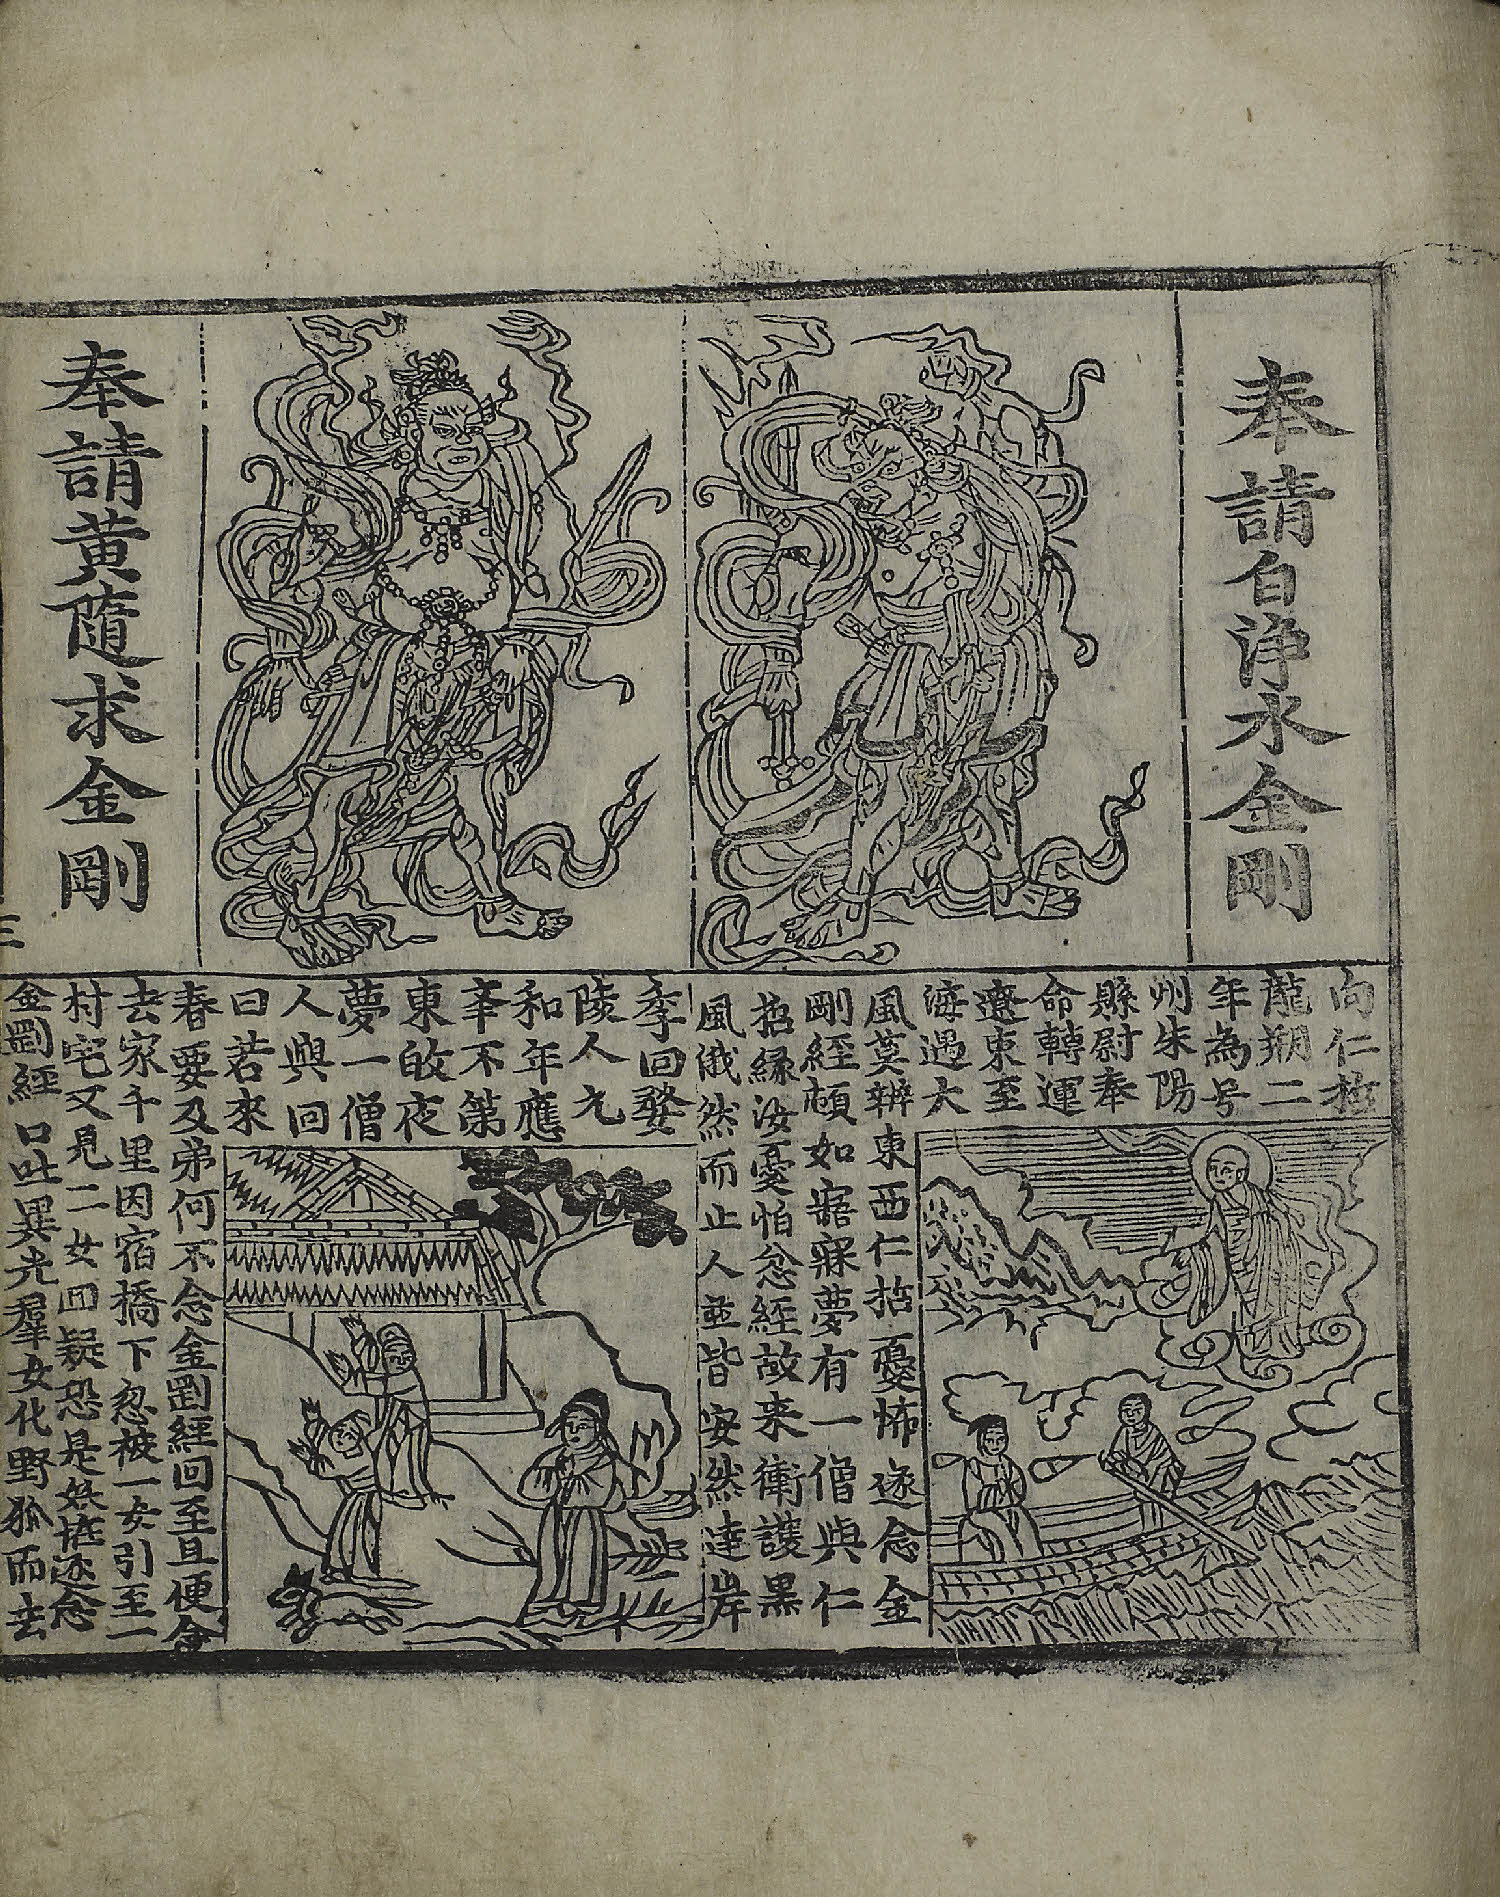 奉請白淨水金剛
奉請黃隨求金剛
三
向仁
龍朔二
年為号
州朱陽
縣尉奉
命轉運
遼東至
海遇大
風莫辨東西仁㧞憂怖遂念金
剛經頓如寤寐夢有一僧與仁
㧞緣汝憂怕念經故来衛護黑
風俄然而止人並皆安然達岸
李回發
陵人元
和年應
峯不第
東敀夜
夢一僧
人與回
曰若來
春要及弟何不念金剛經回至旦便念
去家千里因宿橋下忽被一女引至一
村宅又見二女回疑恐是妖恠遂念
金剛經口吐異光羣女化野狐而去